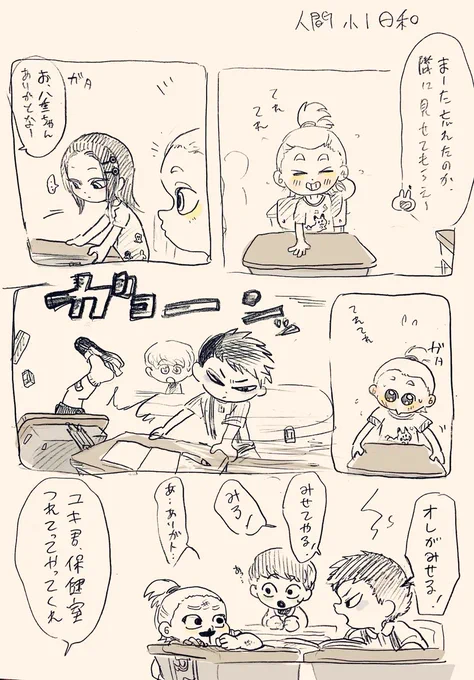 人間 小1日和
まーた忘れたのか、
隣に見せてもらえー
てれ
てれ
ガタ
お、八重ちゃん
ありがとなー
てれてれ
ガタ
ガシャーン
オレがみせる!
みせてやる!
みろ!
あ…
あ…ありがト…
ユキ君、保健室
つれてってやってくれ